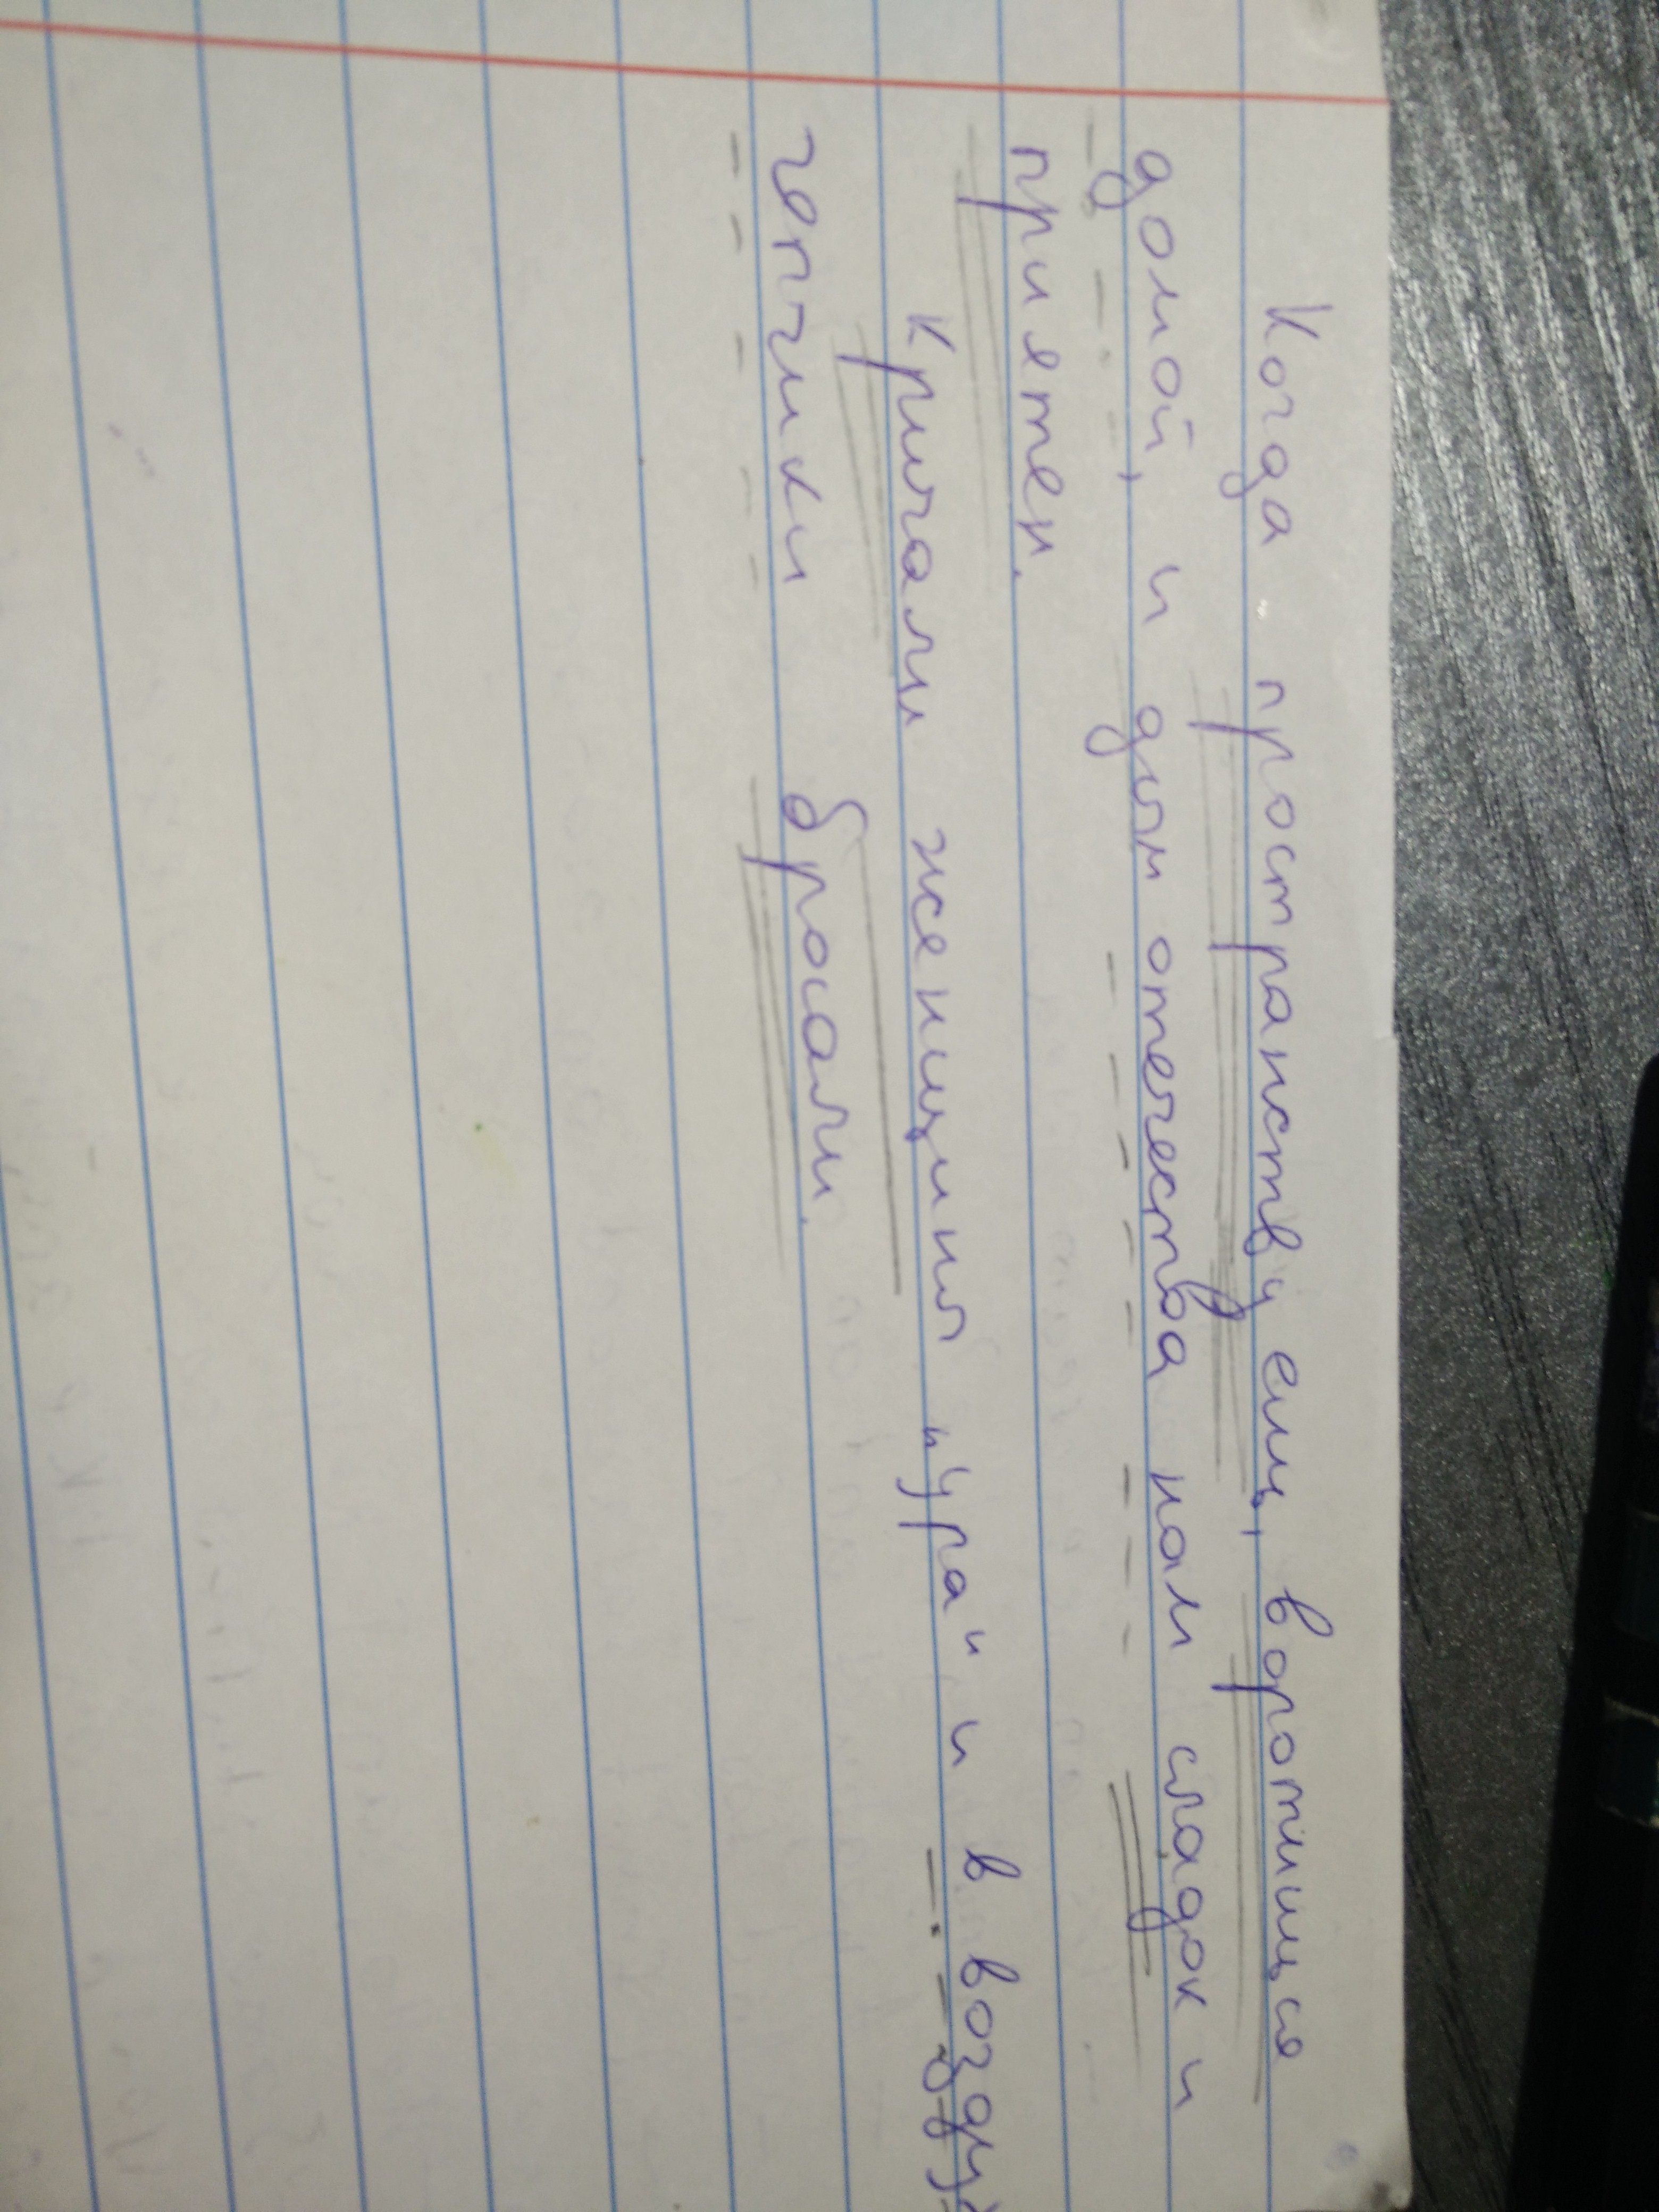 Когда пространствуешь, воротишься
домой, и дым отечества нам сладок и
приятен.
Кричали женщины "ура" и в воздух
чепчики бросали.